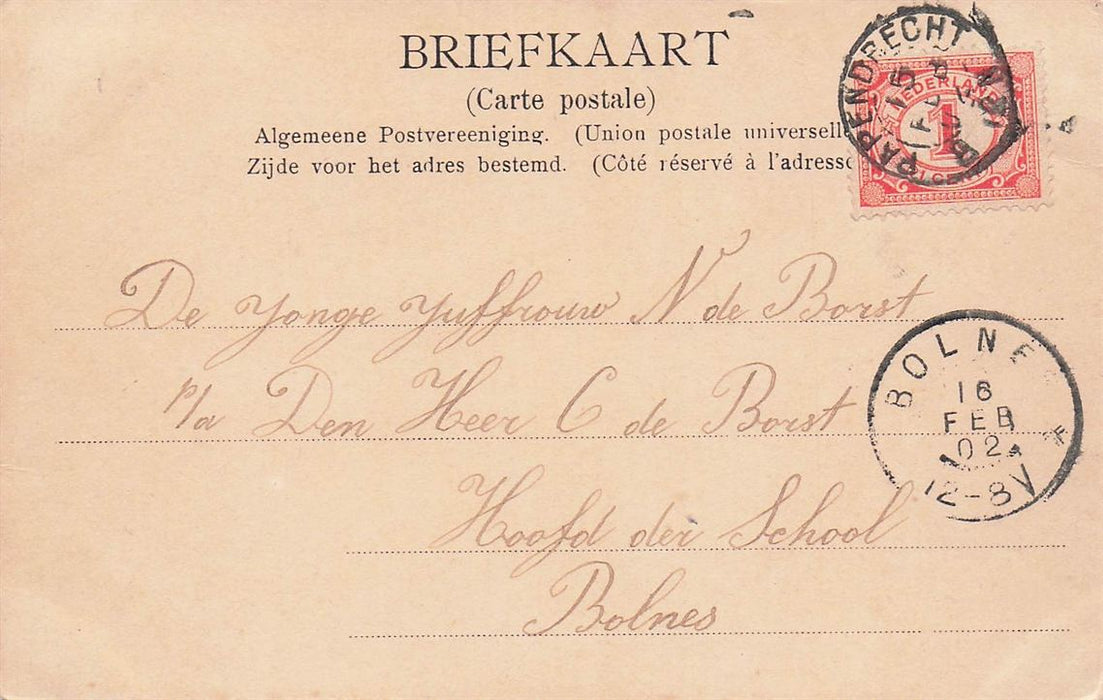 BRIEFKAART
(Carte postale)
Algemeene Postvereeniging. (Union postale universelle
Zijde voor het adres bestemd. (Côté réservé à l'adresse
PAPENDRECHT
NEDERLAND
1
De Yonge Yuffrouw N de Borst
p/a Den Heer C de Borst
Hoofd der School
Bolnes
BOLNES
16
FEB
02
12-8V